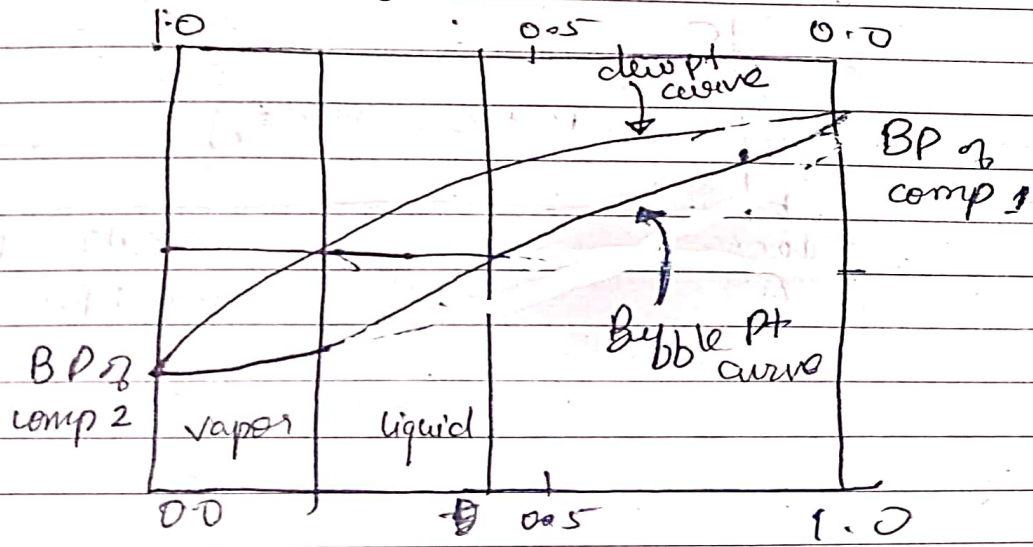 1.0 0.5 0.0
dew pt
curve
BP of
comp 1
Bubble Pt
curve
BP of
comp 2
vapor liquid
0.0 0.5 1.0